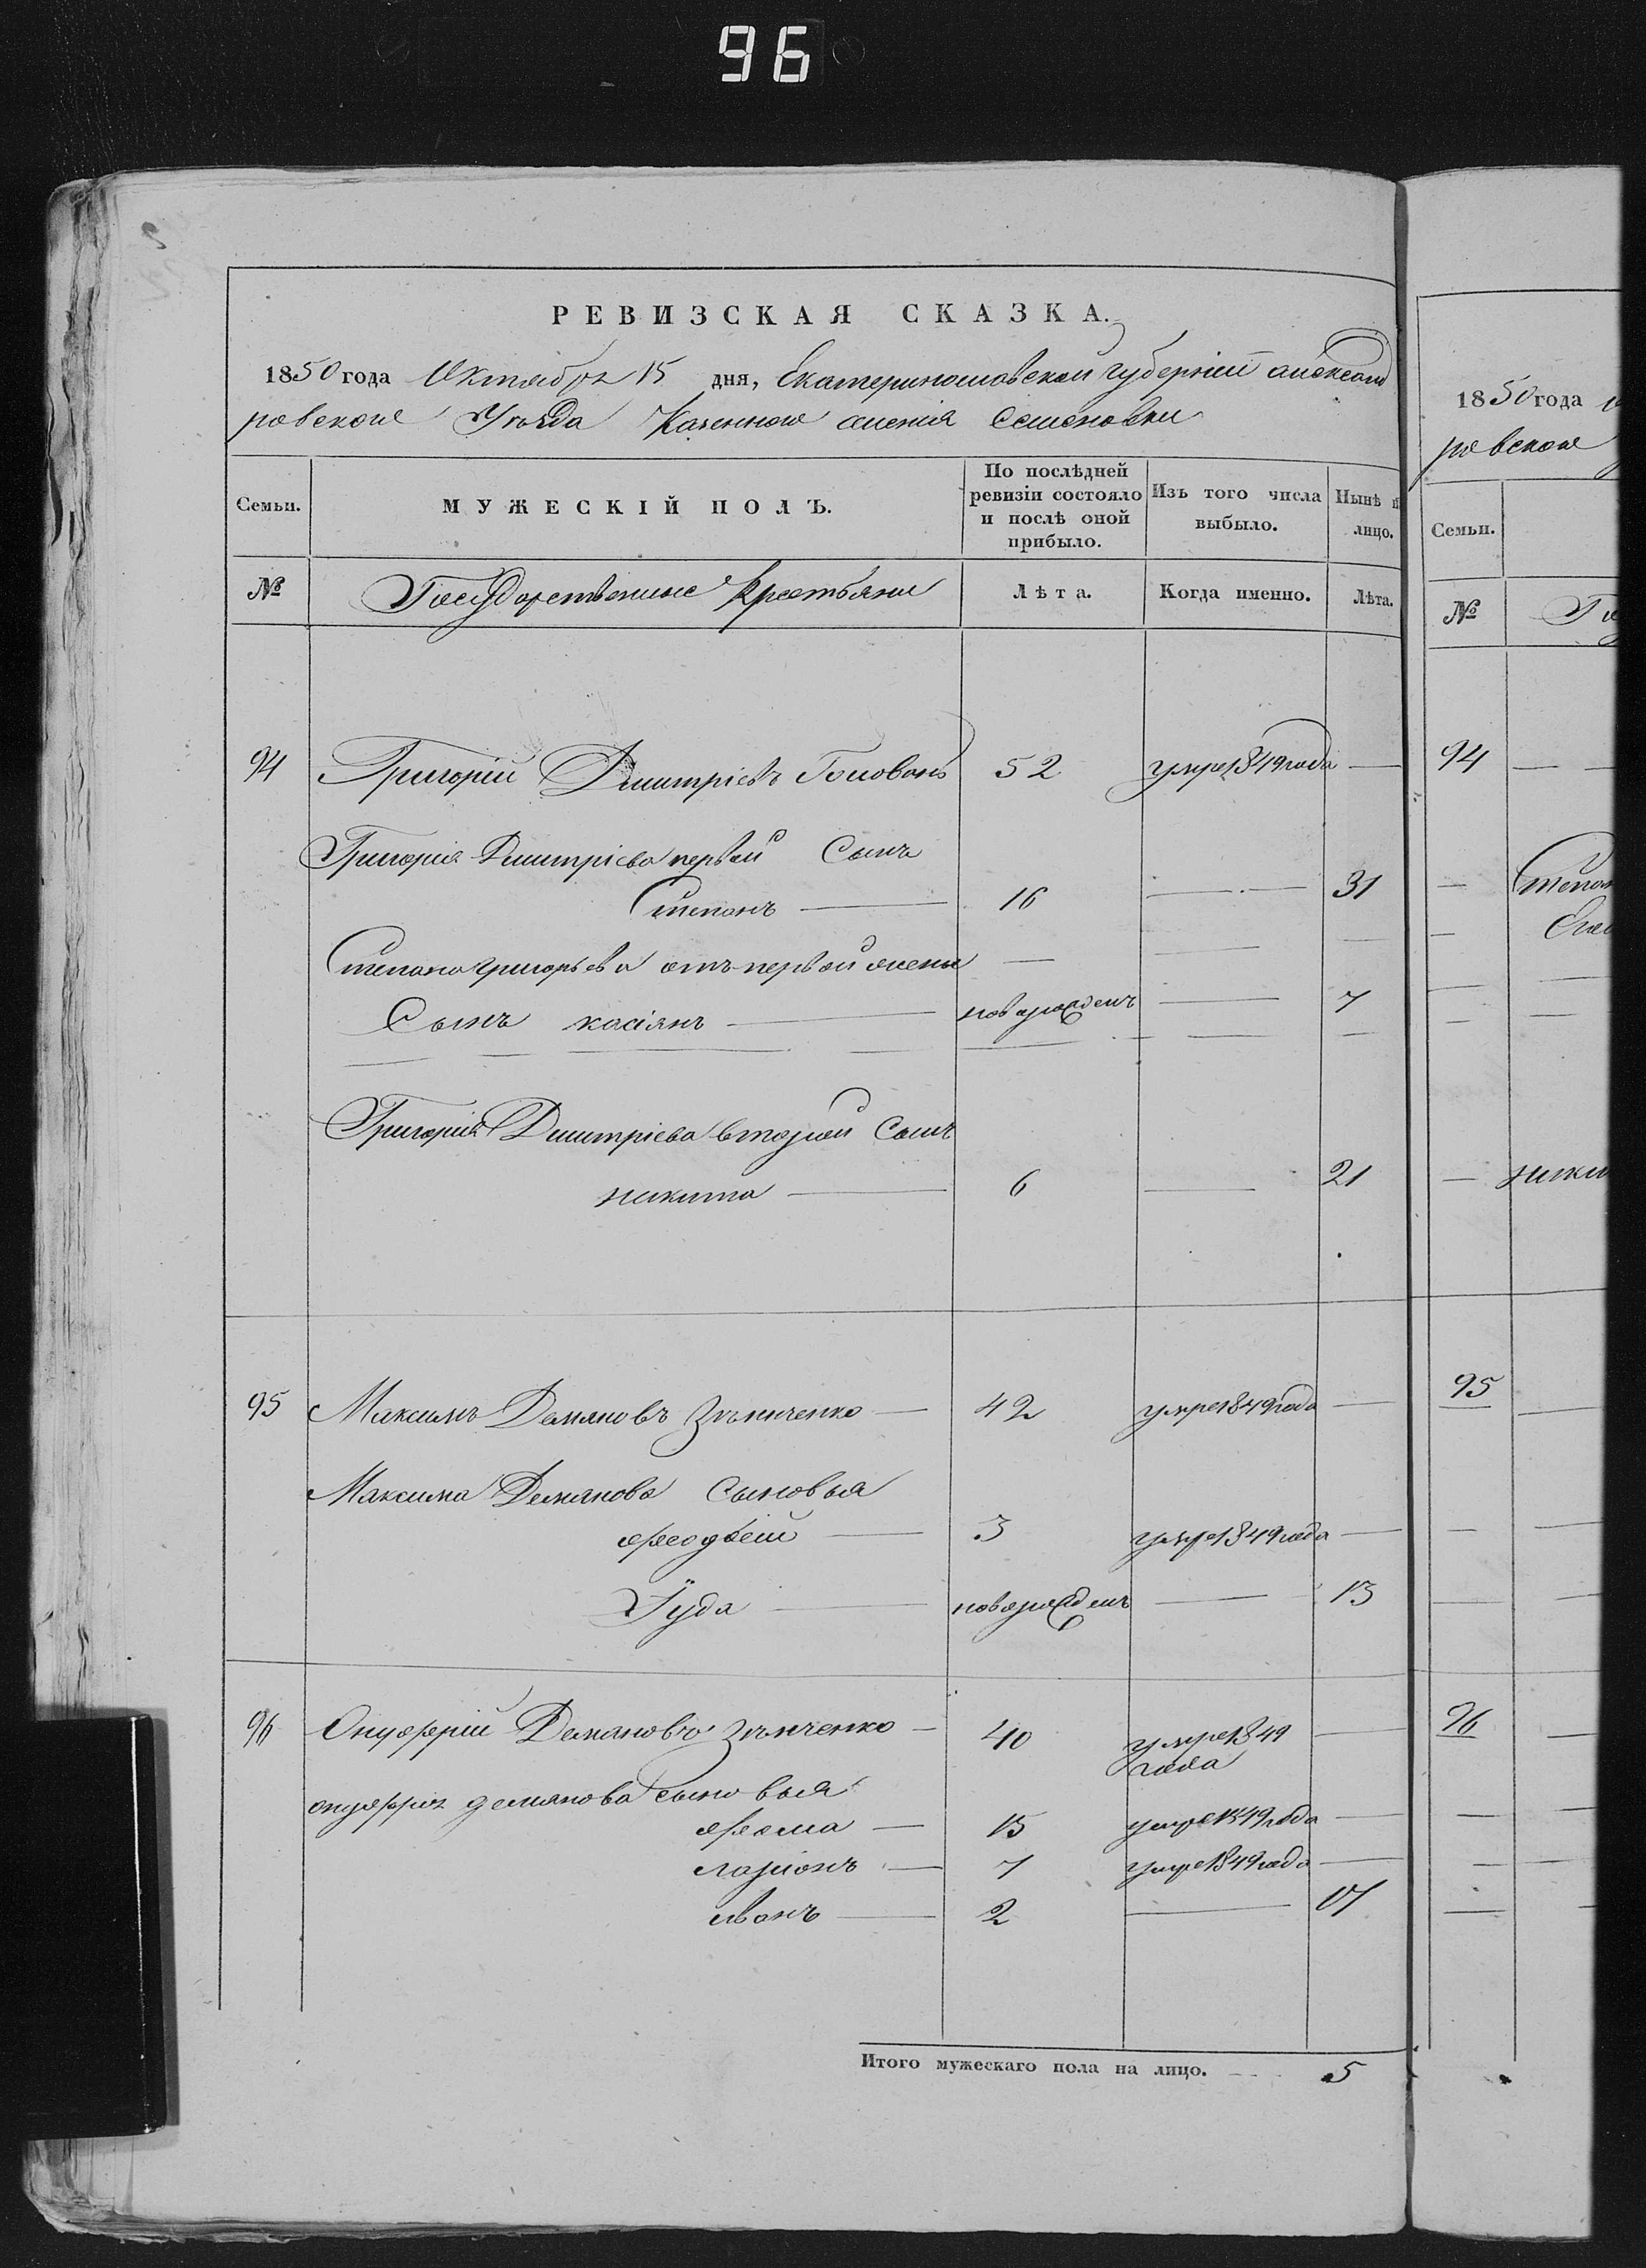 96
РЕВИЗСКАЯ СКАЗКА.
1850 года Октября 15 дня, Екатеринославской губерніи александ
ровского Уѣзда Казенного селенія Семеновки
Семьи. МУЖЕСКІЙ ПОЛЪ. По послѣдней ревизіи состояло и послѣ оной прибыло. Изъ того числа выбыло. Нынѣ н лицо.
№ Государственные Крестьяне Лѣта. Когда именно. Лѣта.
94 Григорій Дмитріевъ Головань 52 умре 1849 года —
Григорія Дмитріева первой Сынъ
Степанъ — 16 — 31
Степана григорьева отъ первой жены — — —
Сынъ касіянъ — новорожденъ — 7
Григорія Дмитріева второй Сынъ
никита — 6 — 21
95 Максимъ Демяновъ Зѣнченко — 42 умре 1849 года —
Максима Демянова Сыновья
3 умре 1849 года —
Іуда — новорожденъ — 13
96 Онуфрій Демяновъ зѣнченко — 40 умре 1849 —
года
онуфрія демянова сыновья
фома — 15 умре 1849 года —
ларіонъ — 7 умре 1849 года —
иванъ — 2 — 17
Итого мужескаго пола на лицо. 5
1850 года
ровского
Семьи.
№
94 — —
— Степан
—
— ники
95
96